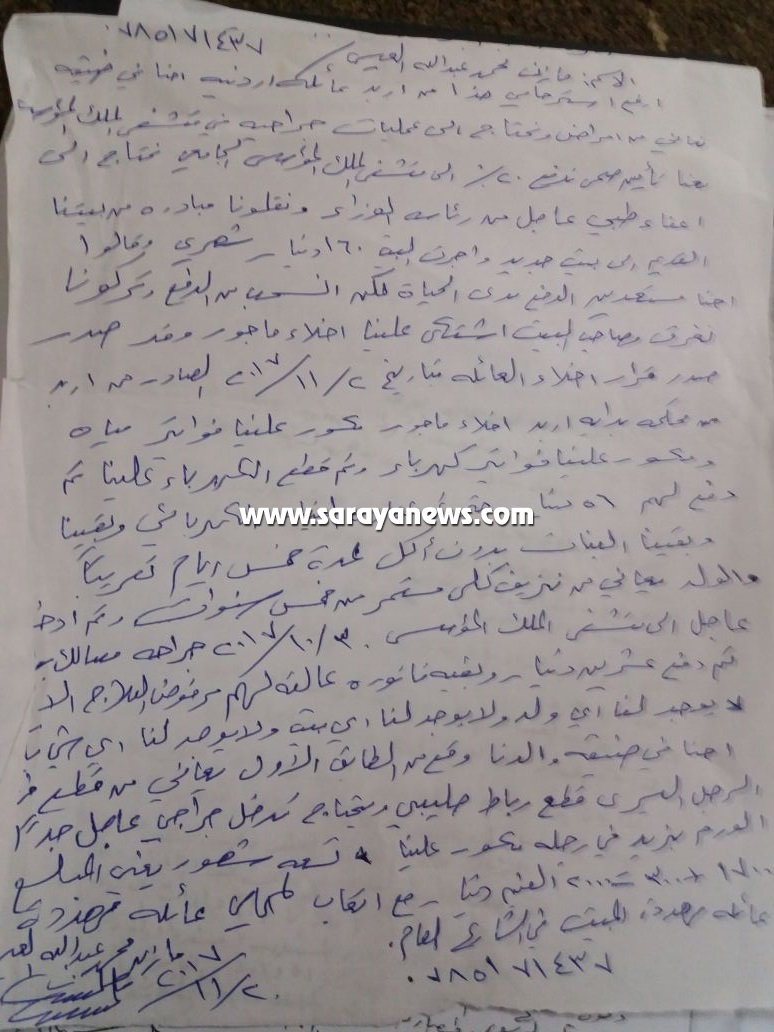 ٠٧٨٥١٧١٤٣٧
الاسم: مازن محمد عبدالله العيسى
ارفع استرحامي هذا من اربد عائلة اردنيه احنا في ضيقه
نعاني من امراض ونحتاج الى عمليات جراحيه في مستشفى الملك المؤسس
معنا تأمين صحي ندفع ٢٠٪ الى مستشفى الملك المؤسس الجامعي نحتاج الى
اعفاء طبي عاجل من رئاسة الوزراء ونقلونا مبادره من بيتنا
القديم الى بيت جديد واجرت البيت ١٦٠ دينار شهري وقالوا
احنا مستعدين الدفع مدى الحياة لكن انسحب من الدفع وتركونا
نغرق وصاحب البيت اشتكى علينا اخلاء ماجور وقد صدر
صدر قرار اخلاء العائله بتاريخ ٢٠١٧/١١/٢ الصادر من اربد
من محكمة بداية اربد اخلاء ماجور مكسور علينا فواتير مياه
ومكسور علينا فواتير كهرباء وتم قطع الكهرباء علينا تم
دفع لهم ٥٦ الكهرباء وبقينا
www.sarayanews.com
وبقينا البنات بدون أكل لمدة خمس ايام تقريباً
والولد يعاني من نزيف كلى مستمر من خمس سنوات وتم
عاجل الى مستشفى الملك المؤسس ٢٠١٧/١٠/٣٠ جراحه مسالك
تم دفع عشرين دينار وبقيه فاتوره عالقة لهم مرفوض العلاج الا
لا يوجد لنا أي ولد ولا يوجد لنا اي بيت ولا يوجد لنا اي
احنا في ضيقه والدنا وقع من الطابق الأول يعاني من قطع في
الرجل اليسرى قطع رباط صليبي ويحتاج تدخل جراحي عاجل جداً
الورم يزيد في رجله مكسور علينا تسعه شهور يعني المبلغ
١٧٠٠ + ٣٠٠ = ٢٠٠٠ الفين دينار مع اتعاب المحامي عائله مهددة
عائله مهددة المبيت في الشارع العام.
٠٧٨٥١٧١٤٣٧
مازن محمد عبدالله العيسى
٢٠١٧/١١/٢٠